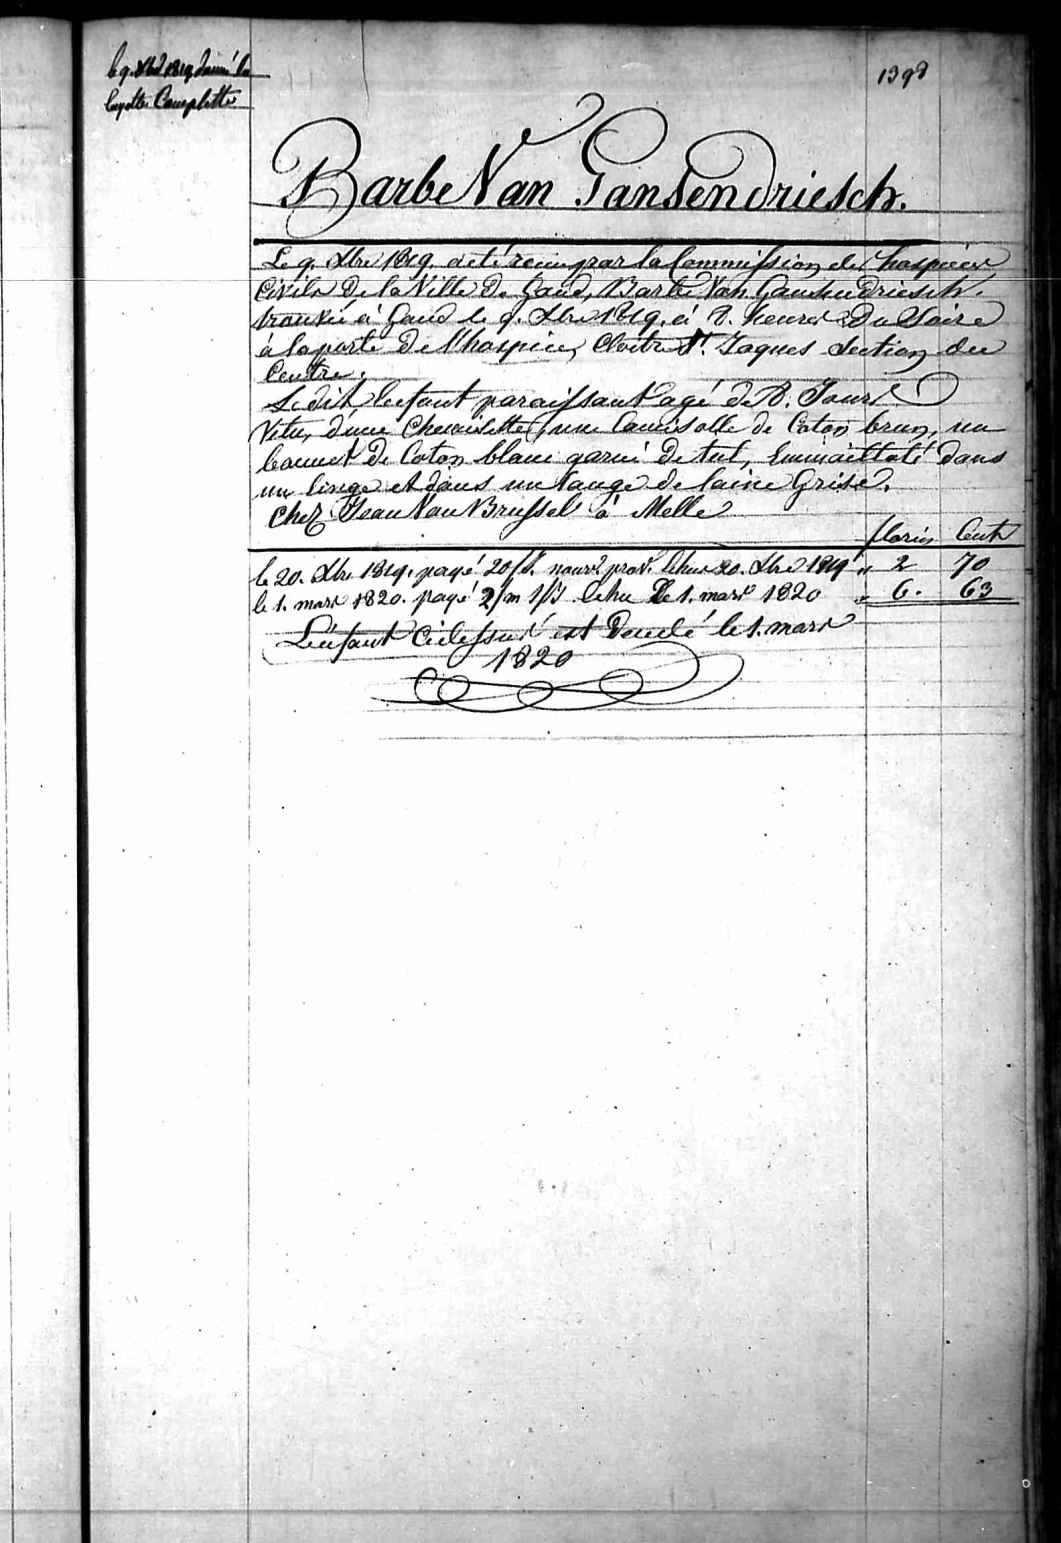 le 9. Xbre 1819 donné la
layette Complette
1398
Barbe Van Gansendriesch.
Le 9. Xbre 1819. a eté recue par la Commission des hospices
Civils de la Ville de Gand, Barbe Van Gansendriesch,
trouvée à Gand le 9. Xbre 1819. à 8. heures du Soire
à la porte de l'hospice, Cloitre St. Jaques Section du
Centre.
Le dit Enfant paraissant agé de 8. Jours
Vetu, d'une Chemisette, une Camisolle de Coton brun, un
bonnet de Coton blanc garni de tul, Emmaillotté dans
un linge et dans un lange de laine Grise.
Chez Jean Van Brussel à Melle
florins Cents
le 20. Xbre 1819. payé 20/J. nourr. prov. Echus 20. Xbre 1819 „ 2 70
le 1. mars 1820. payé 2/m 1/J Echu Le 1. mars 1820 „ 6. 63
L'énfant Cidessus est Decedé le 1. mars
1820